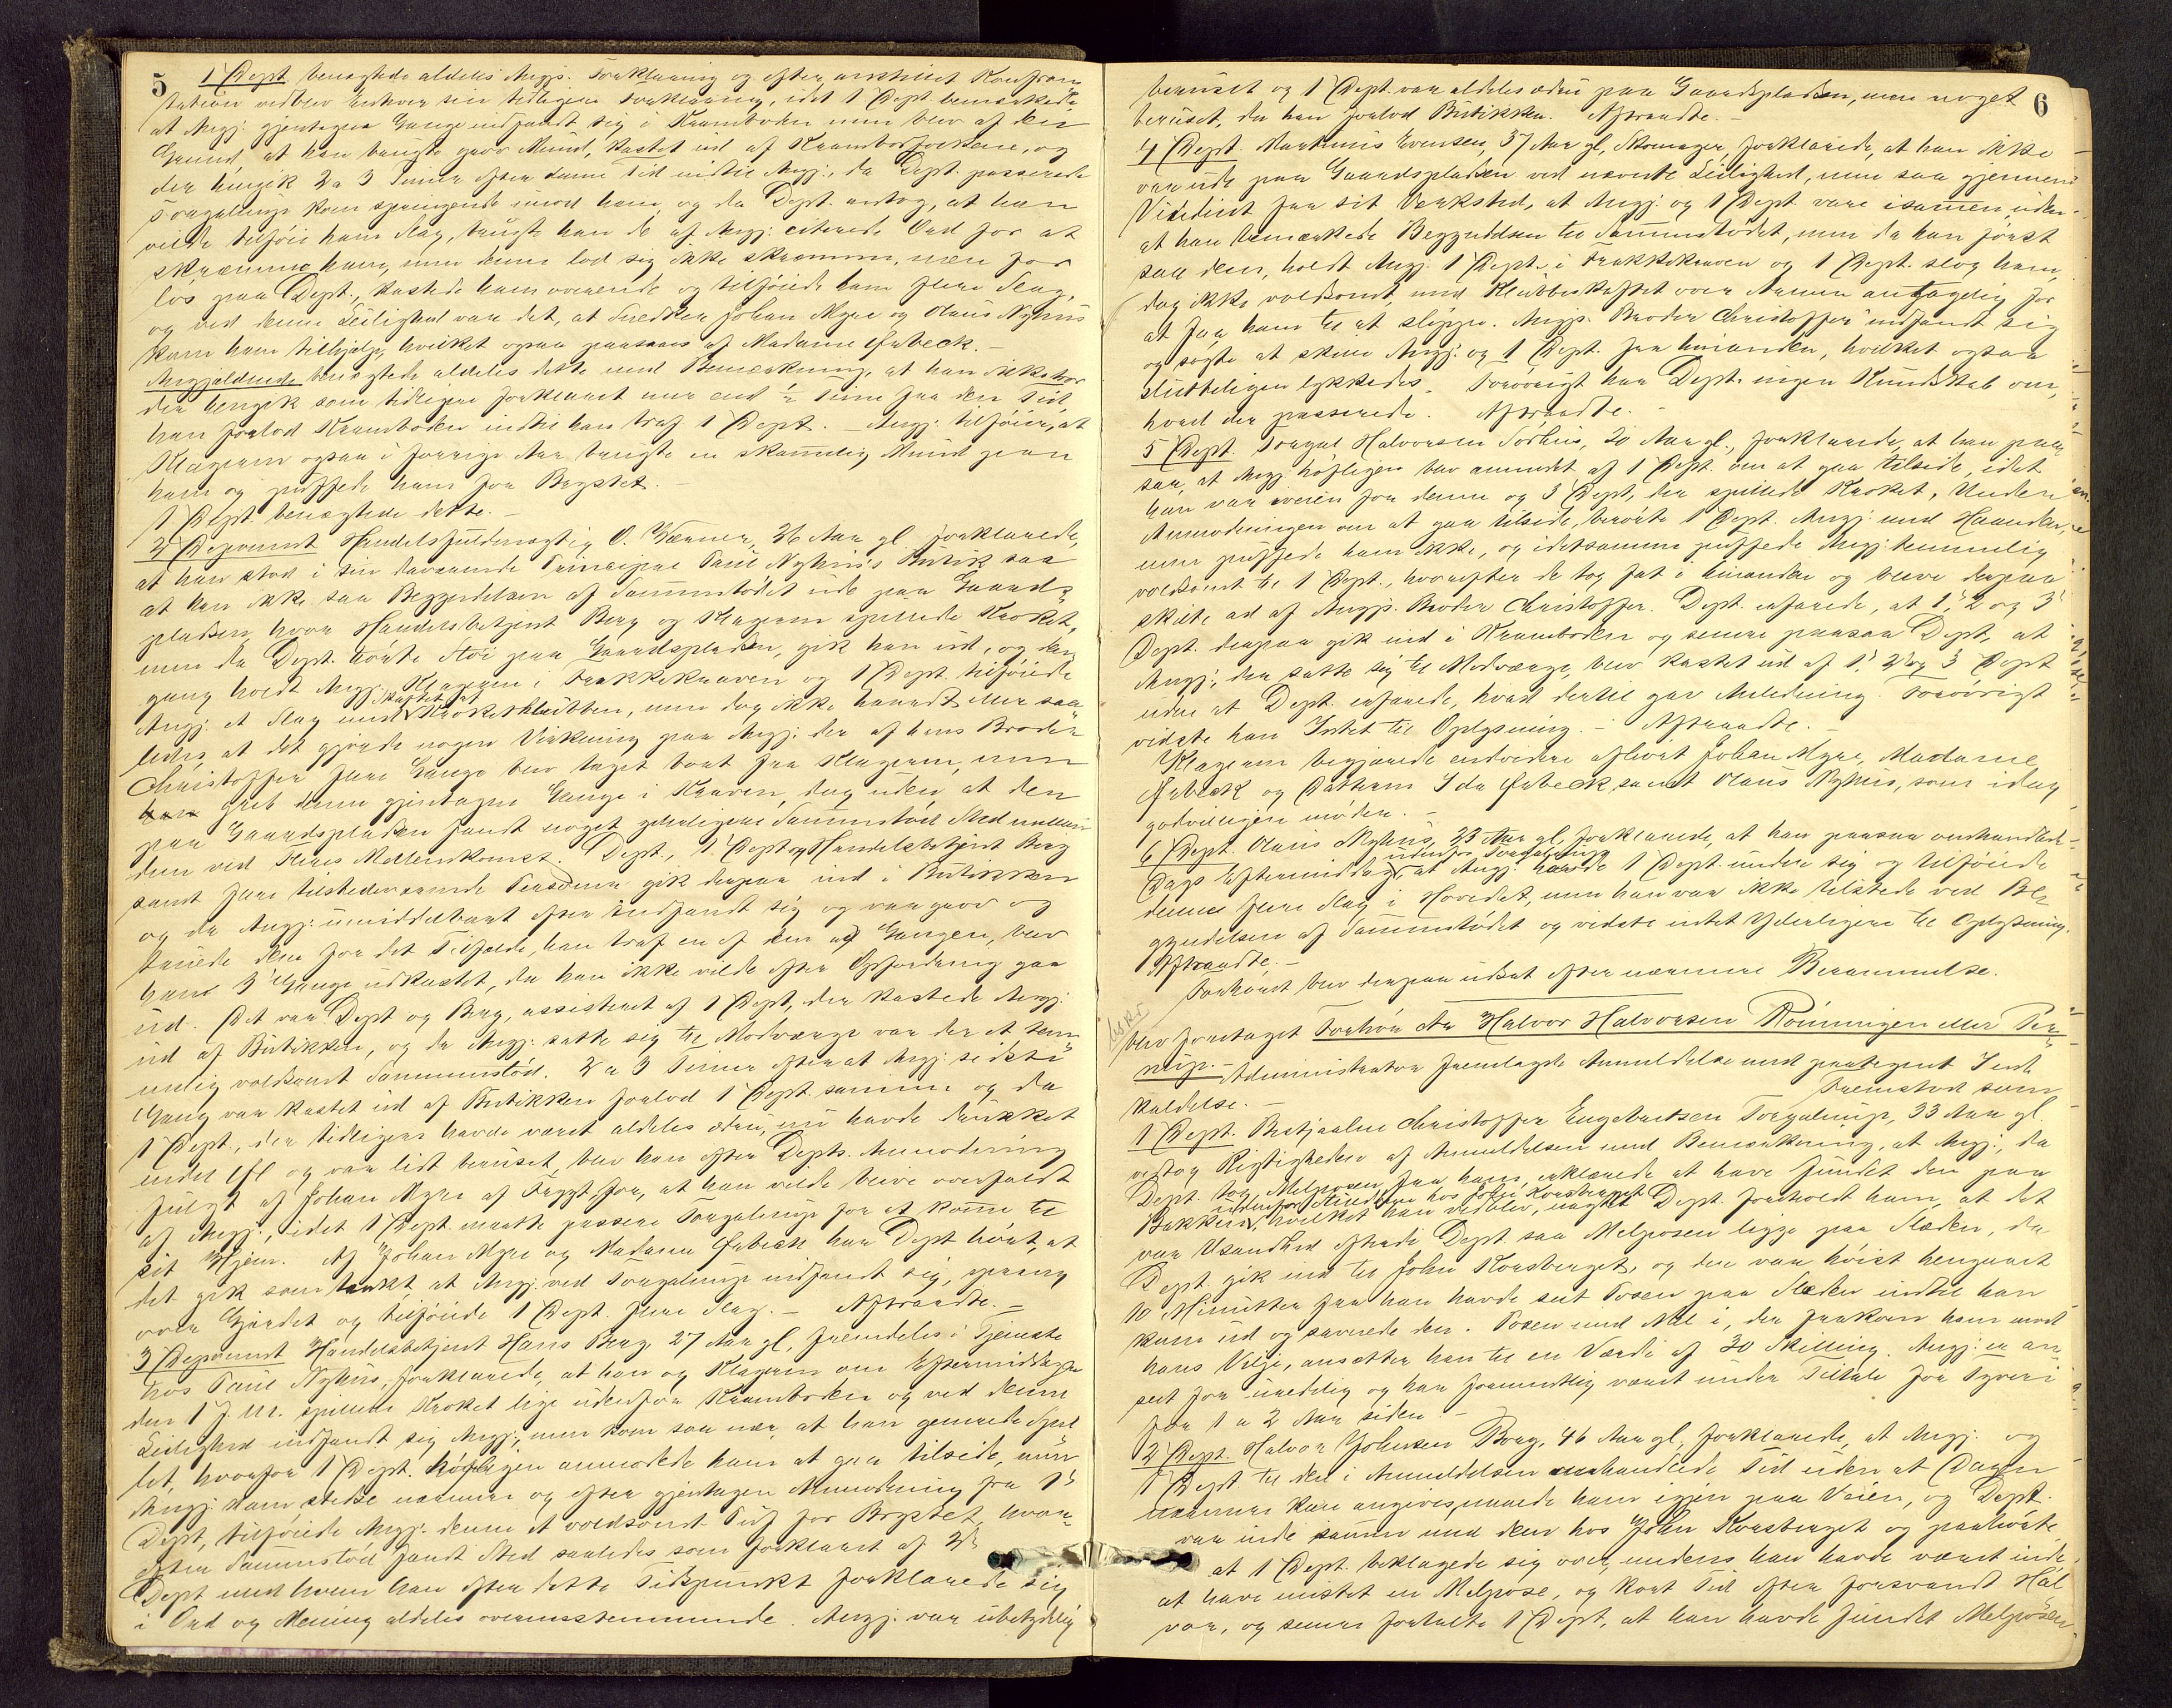 5
1 Dept. benægtede aldeles Angjs. Forklaring og efter anstillet Konfron-
tation vedblev Enhver sin tidligere Forklaring, idet 1 Dept. bemærkede
at Angj. gjentagne Gange indfandt sig i Kramboden men blev af den
Grund, at han brugte grov Mund, kastet ud af Krambodfolkene, og
der hengik 2 a 3 Timer efter denne Tid indtil Angj., da Dept. passerede
Torgalsrup kom springende imod ham og da Dept. antog, at han
vilde tilføie ham Slag, brugte han de af Angj. citerede Ord for at
skræmme ham, men denne lod sig ikke skræmme, men for
løs paa Dept., kastede ham overende og tilføiede ham flere Slag,
og ved denne Leilighed var det, at Snedker Johan Myre og Olaus Nyhus
kom ham tilhjælp, hvilket ogsaa paasaaes af Madame Ørbeck.-
Angjældende benægtede aldeles dette med Bemærkning, at han ikke tror
der hengik som tidligere forklaret mer end ½ Time fra den Tid,
han forlod Kramboden indtil han traf 1 Dept. - Angj. tilføier, at
Klageren ogsaa i forrige Aar brugte en skammelig Mund paa
ham og puffede ham for Brystet.-
1 Dept. benægtede dette.-
2 Deponent Handelsfuldmægtig O. Wærner, 26 Aar gl forklarede,
at han stod i sin daværende Principal Paul Nyhus's Butik saa
at han ikke saa Begyndelsen af Sammenstødet ude paa Gaards-
pladsen hvor Handelsbetjent Berg og Klageren spillede Kroket,
men da Dept. hørte Støi paa Gaardspladsen, gik han ud, og den-
gang holdt Angj. Klageren i Frakkekraven og 1 Dept. tilføiede
Angj. et Slag med skaftet af Kroketklubben, men dog ikke haardt eller saa-
ledes, at det gjorde nogen Virkning paa Angj. der af hans Broder
Christoffer flere Gange blev taget bort fra Klageren, men
han greb denne gjentagne Gange i Kraven, dog uden at der
paa Gaardspladsen fandt noget yderligere Sammenstød Sted mellem
dem ved Fleres Mellemkomst. Dept., 1 Dept og Handelsbetjent Berg
samt flere tilstedeværende Personer gik derpaa ind i Butikken
og da Angj. umiddelbart efter indfandt sig og var grov og
truede dem for det Tilfælde, han traf en af dem ad Gangen, blev
han 3 Gange udkastet, da han ikke vilde efter Opfordring gaa
ud. Det var Dept og Berg, assisteret af 1 Dept, der kastede Angj.
ud af Butikken, og da Angj. satte sig til Modværge var der et tem-
melig voldsomt Sammenstød. 2 a 3 Timer efter at Angj. sidste
Gang var kastet ud af Butikken forlod 1 Dept. samme og da
1 Dept., der tidligere havde været aldeles ædru, nu havde drukket
endel Øl og var lidt beruset, blev han efter Depts. Anmodning
fulgt af Johan Myre af Frygt for, at han vilde blive overfaldt
af Angj., idet 1 Dept. maatte passere Torgalsrup for at komme til
sit Hjem. Af Johan Myre og Madame Ørbeck har Dept hørt, at
det gik som tænkt, at Angj. ved Torgalsrup indfandt sig, sprang
over Gjærdet og tilføiede 1 Dept. flere Slag.- Aftraadte.-
3 Deponent Handelsbetjent Hans Berg, 27 Aar gl, fremdeles i Tjeneste
hos Paul Nyhus, forklarede, at han og Klageren om Eftermiddagen
den 1 f. M. spillede Kroket lige udenfor Kramboden og ved denne
Leilighed indfandt sig Angj., men kom saa nær, at han generede Spil-
let, hvorfor 1 Dept. høfligen anmodede ham at gaa tilside, men
Angj. kom stedse nærmere og efter gjentagen Anmodning fra 1ste
Dept, tilføiede Angj. denne et voldsomt Puf for Brystet, hvor-
efter Sammenstød fandt Sted saaledes som forklaret af 2den
Dept med hvem han efter dette Tidspunkt forklarede sig
i Ord og Mening aldeles overensstemmende. Angj. var ubetydelig
6
beruset og 1 Dept. var aldeles ædru paa Gaardspladsen, men noget
beruset, da han forlod Butikken. Aftraadte.-
4 Dept. Martinus Evensen, 37 Aar gl, Skomager, forklarede, at han ikke
var ude paa Gaardspladsen ved nævnte Leilighed, men saa gjennem
Vinduet fra sit Værksted, at Angj. og 1 Dept. vare isammen, uden
at han bemærkede Begyndelsen til Sammenstødet, men da han først
saa dem, holdt Angj. 1 Dept. i Frakkekraven og 1 Dept. slog ham,
dog ikke voldsomt, med Klubbeskaftet over Armen antagelig for
at faa ham til at slippe. Angjs. Broder Christoffer indfandt sig
og søgte at skille Angj. og 1 Dept. fra hinanden, hvilket ogsaa
sluttelligen lykkedes. Forøvrigt har Dept. ingen Kundskab om,
hvad der passerede. Aftraadte.-
5 Dept. Torgal Halvorsen Torhus, 20 Aar gl., forklarede, at han paa-
saa, at Angj. høfligen blev anmodet af 1 Dept. om at gaa tilside, idet
han var iveien for denne og 3 Dept, der spillede Kroket. Under
Anmodningen om at gaa tilside, berørte 1 Dept. Angj. med Haanden,
men puffede ham ikke, og idetsamme puffede Angj. temmelig
voldsomt til 1 Dept., hvorefter de tog fat i hinanden og bleve derpaa
skilt ad af Angjs. Broder Christoffer. Dept. erfarede, at 1, 2 og 3
Dept. derpaa gik ind i Kramboden og senere paasaa Dept, at
Angj., der satte sig til Modværge, blev kastet ud af 1, 2 og 3 Dept
uden at Dept. erfarede, hvad dertil gav Anledning. Forøvrigt
vidste han Intet til Oplysning.- Aftraadte.-
Klageren begjærede endvidere afhørt Johan Myre, Madame
Ørbeck og Datteren Ida Ørbeck, samt Olaus Nyhus, som idag
godvilligen mødte.-
6 Dept. Olaus Nyhus, 23 Aar gl, forklarede, at han paasaa omhandlede
Dags Eftermiddag udenfor Torgalsrup at Angj. havde 1 Dept. under sig og tilføiede
denne flere Slag i Hovedet, men han var ikke tilstede ved Be-
gyndelsen af Sammenstødet og vidste intet Yderligere til Oplysning.
Aftraadte.-
Forhøret blev derpaa udsat efter nærmere Berammelse.
blev foretaget Forhør ctr Halvor Halvorsen Rønningen eller Tor-
rup.- Administrator fremlagde Anmeldelse med paategnet Ind-
kaldelse.- Fremstod som
1 Dept. Christoffer Engebretsen Torgalsrup, 33 Aar gl
vedtog Rigtigheden af Anmeldelsen med Bemærkning, at Angj., da
Dept. tog Melposen fra ham, erklærede at have fundet den paa
Bakken udenfor hos John Korsberget, hvilket han vedblev, uagtet Dept. foreholdt ham, at det
var Usandhed efterdi Dept. saa Melposen ligge paa Slæden, da
Dept. gik ind til John Korsberget, og der var høist hengaaet
10 Minutter fra han havde seet Posen paa Slæden indtil han
kom ud og savnede den. Posen med Mel i, der frakom ham mod
hans Vilje, ansætter han til en Værdi af 30 Skilling. Angj. er an-
seet for uredelig og har formentlig været under Tiltale for Tyveri
for 1 a 2 Aar siden.-
2 Dept. Halvor Johnsen Borg, 46 Aar gl, forklarede, at Angj. og
1 Dept til den i Anmeldelsen omhandlede Tid uden at Dagen
nærmere kan angives, naaede ham igjen paa Veien, og Dept.
var inde sammen med dem hos John Korsberget og paahørte
at 1 Dept. beklagede sig over, medens han havde været inde,
at have mistet en Melpose, og kort Tid efter forsvandt Hal-
vor, og senere fortalte 1 Dept, at han havde fundet Melposen